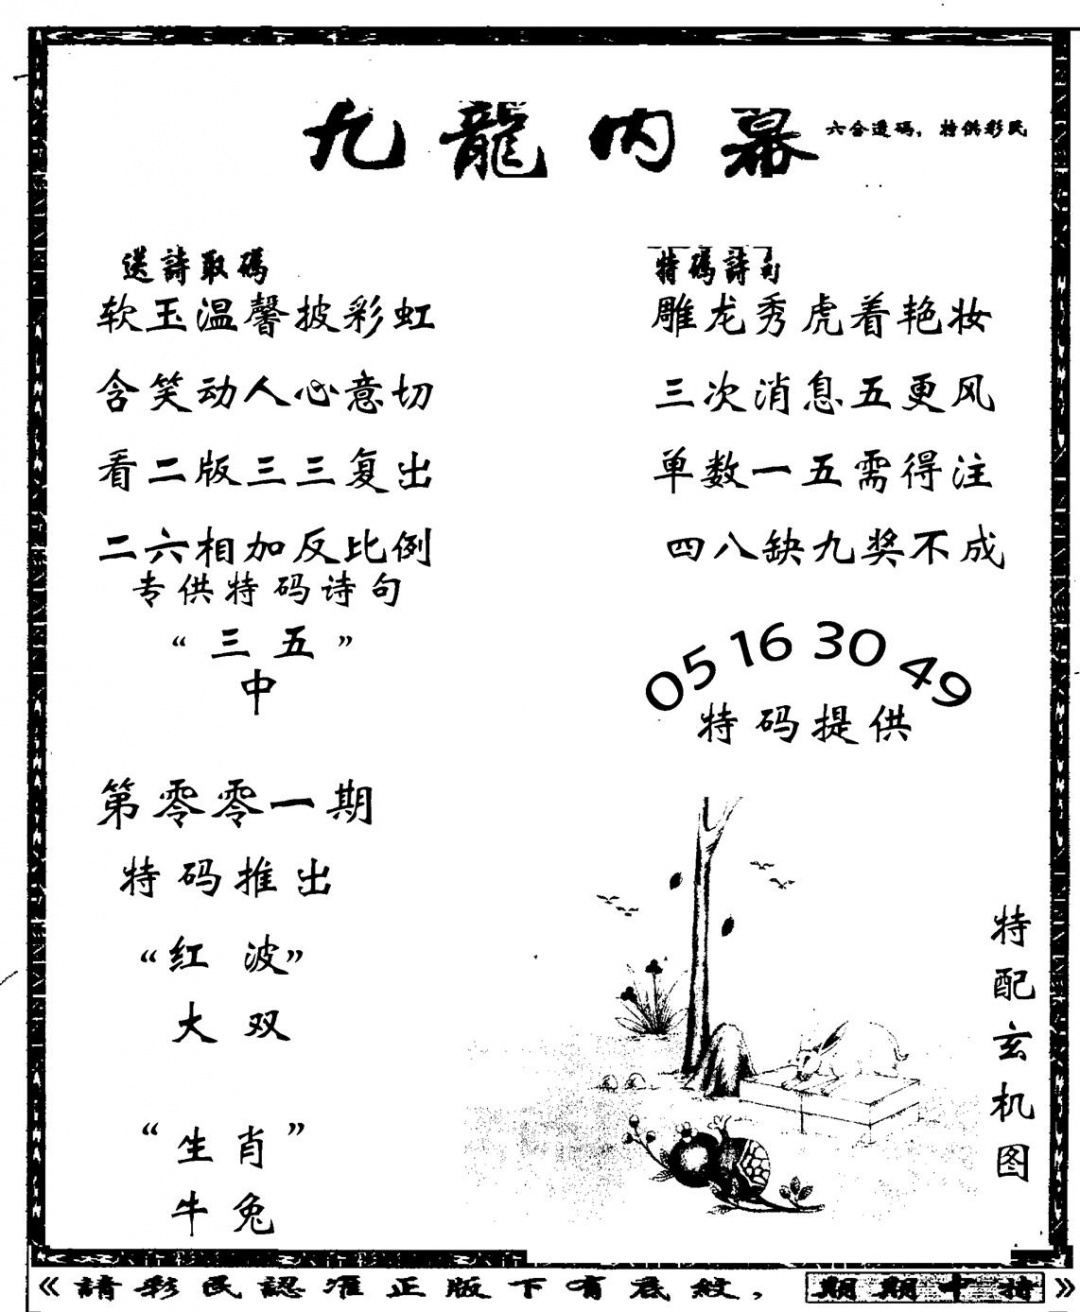 九龍内幕
六合透码，特供彩民
送詩取碼
软玉温馨披彩虹
含笑动人心意切
看二版三三复出
二六相加反比例
专供特码诗句
“三五”
中
第零零一期
特码推出
“红波”
大双
“生肖”
牛兔
特碼詩句
雕龙秀虎着艳妆
三次消息五更风
单数一五需得注
四八缺九奖不成
05 16 30 49
特码提供
特配玄机图
《請彩民認准正版下有底紋，期期中特》